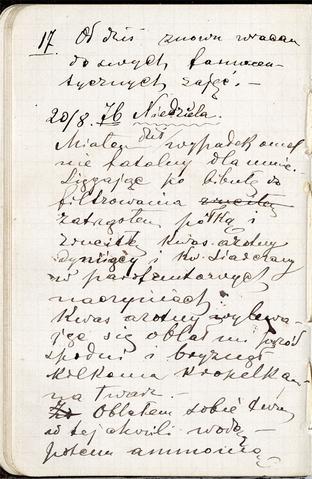 17 Od dziś znowu wracam
do swych farmaceu-
tycznych zajęć. —
20/8. 76 Niedziela.
Miałem dziś wypadek omal
nie fatalny dla mnie.
Sięgając po bibułę do
filtrowania
zatrąciłem półkę i
zrzuciłem kwas azotny
dymiący i kw. siarczany
w
naczyniach.
Kwas azotny wylewa-
jąc się oblał mi
spodni i bryznął
kilkoma kropelkam
na twarz. —
Oblałem sobie twarz
od tej chwili wodą —
potem ammonią